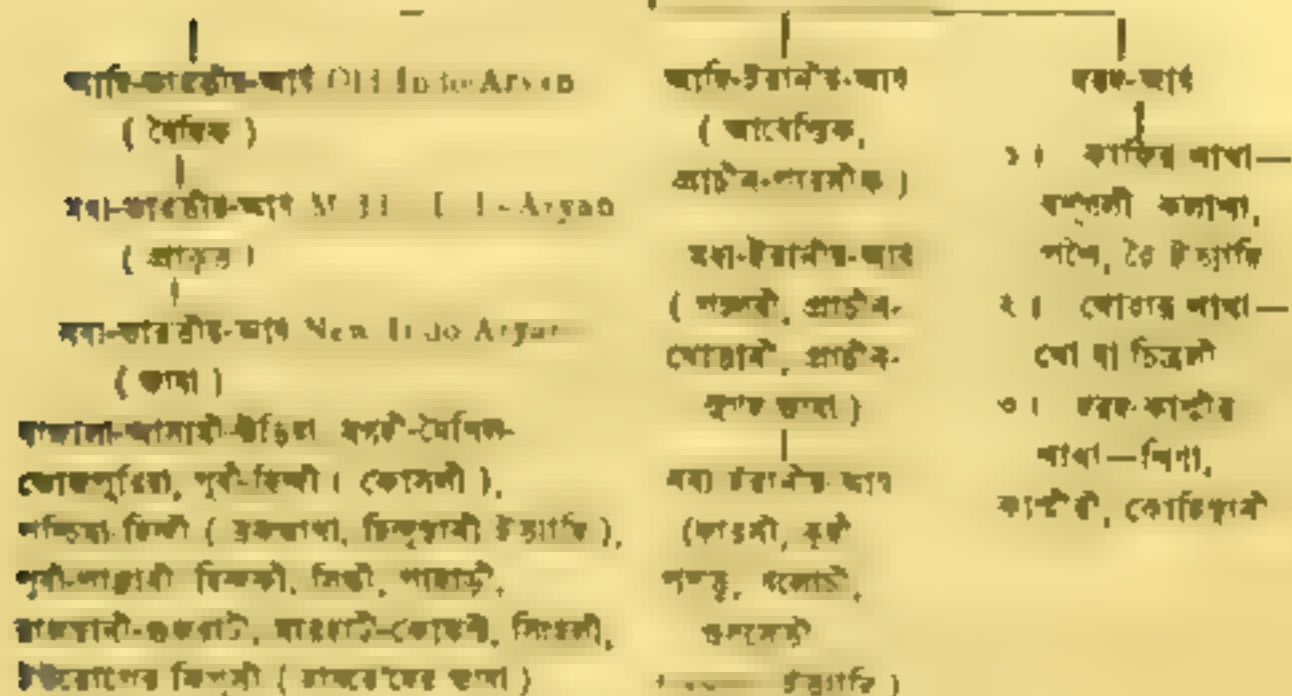 আদি-ভারতীয়-আর্য Old Indo-Aryan
( বৈদিক )
মধ্য-ভারতীয়-আর্য Middle Indo-Aryan
( প্রাকৃত )
নব্য-ভারতীয়-আর্য New Indo Aryan
( ভাষা )
বাঙ্গালা-আসামী-উড়িয়া মগহী-মৈথিল-
ভোজপুরিয়া, পূর্বী-হিন্দী ( কোসলী ),
পশ্চিমা-হিন্দী ( ব্রজভাখা, হিন্দুস্থানী ইত্যাদি ),
পূর্বী-পাঞ্জাবী হিন্দকী, সিন্ধী, পাহাড়ী,
রাজস্থানী-গুজরাটী, মারহাট্টী-কোঙ্কণী, সিংহলী,
ইউরোপের জিপ্সী ( ভাষা )
আদি-ইরানীয়-আর্য
( আবেস্তিক,
প্রাচীন-পারসীক )
মধ্য-ইরানীয়-আর্য
( পহ্লবী, প্রাচীন-
খোতানী, প্রাচীন-
ভাষা )
নব্য ইরানীয়-আর্য
(ফারসী, কুর্দী
পশতু, বলোচী,
ইত্যাদি )
দরদ-আর্য
১। কাফির শাখা—
কলাশা,
পশৈ, ইত্যাদি
২। খোৱার শাখা—
খো বা চিত্রলী
৩। দরদ-কাশ্মীর
শাখা—শিণা,
কাশ্মীরী, কোহিস্থানী